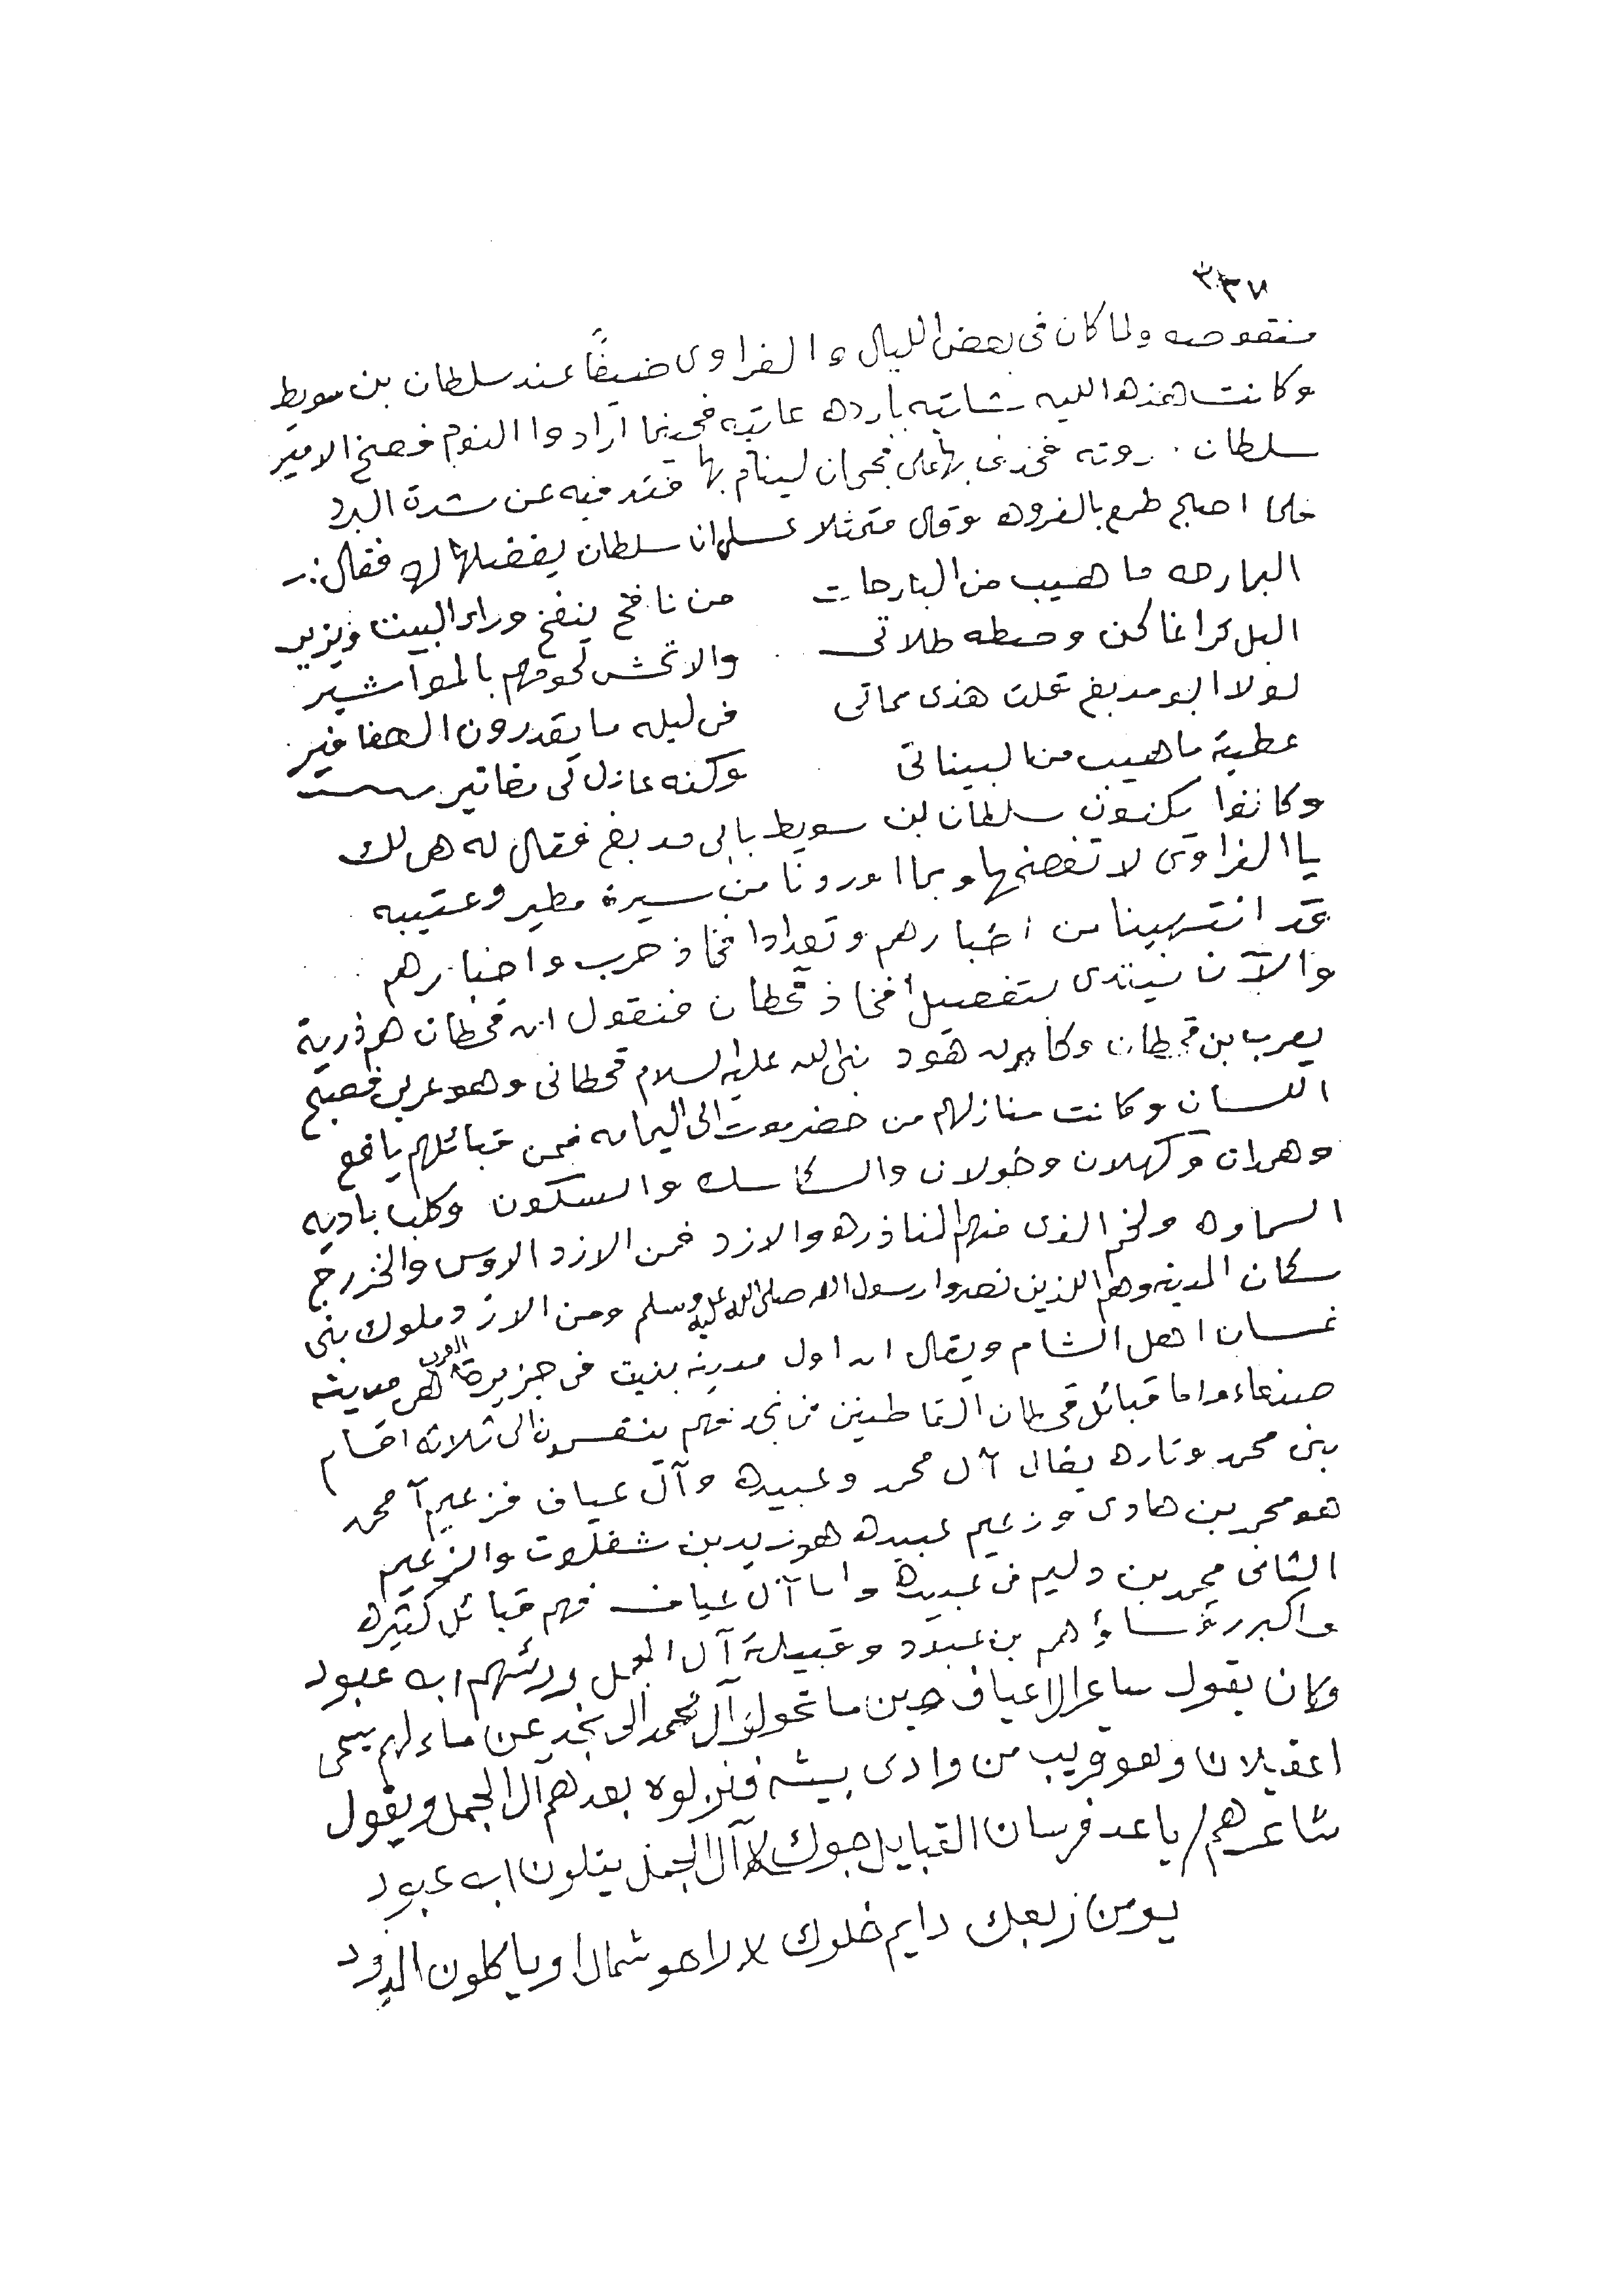 ٣٣٧
منقوصه ولما كان في بعض الليال والفراوى ضيفاً عند سلطان بن سويط
وكانت هذه الليه شاتيه بارده عاتيه فحينما أرادوا النوم فصخ الامير
سلطان روته فحذف بها على نجران لينام بها فتدفيه عن شدة البرد
فلما اصبح طمع بالفروه وقال متمثلا عسلى ان سلطان يفضلها له فقال :-
البارحه ما هيب من البارحات من نافخ ينفخ وراء البيت ويزير
البل كراغا كن وسطه طلاتى والا تحش لحومهم بالمواشير
لولا ابو مدبغ قلت هذى مماتى فى ليله ما يقدرون الصفافير
عطية ما هيب من البيناتى وكنه عازل لى مفاتير
وكانوا يكنون سلطان بن سويط بابى مدبغ فقال له هى لك
يا الفراوى لا تفصخها وبما اوردنا من سيرة مطير وعتيبه
قد انتهينا من أخبارهم وتعدادا فخاذ حرب واخبارهم
والآن نبتدى بتفصيل أفخاذ قحطان فنقول ان قحطان هم ذرية
يعرب بن قحطان وكان هود نبى الله عليه السلام قحطانى وهو عربى فصيح
اللسان وكانت منازلهم من حضرموت الى اليمامه فمن قبائلهم يافع
وهمدان وكهلان وخولان والسكاسك والسكون وكلب باديه
السماوه ولخم الذى منهم المناذره والازد فمن الازد الاوس والخزرج
سكان المدينه وهم اللذين نصروا رسول الله صلى الله عليه وسلم ومن الازد ملوك بنى
غسان اهل الشام ويقال ان اول مدينه بنيت فى جزيرة العرب هى مدينه
صنعاء واما قبائل قحطان القاطنين فى نجد فهم ينقسمون الى ثلاثه اقسام
بنى محمد وتاره يقال آل محمد وعبيده وآل عياف فزعيم آ محمد
هو محمد بن هادى وزعيم عبيده هوزيد بن شفلوت والزعيم
الثانى محمد بن دليم فى عبيده واما آل عياف فهم قبائل كثيره
واكبر رؤساؤهم بن عبود وقبيلة آل الجمل ورئسهم ابن عبود
وكان يقول ساعر الاعياف حين ما تحولوا آل محمد الى نجد عن ماء لهم يسمى
اعقيلان وهو قريب من وادى بيشه فنزلوه بعدهم آل الجمل ويقول
شاعرهم / يا عد فرسان القبايل جوك لا آل الجمل يتلون ابن عبود
يومن ربعك دايم خلوك لا راحو شمال او ياكلون الدود